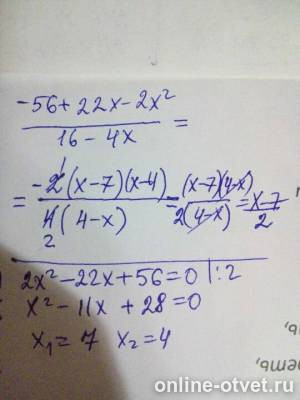 -56+22x-2x²
16-4x
=
= -2(x-7)(x-4)
4(4-x)
1
2
= (x-7)(4-x)
2(4-x)
= x-7
2
2x²-22x+56=0 |:2
x²-11x+28=0
x₁=7 x₂=4
online-otvet.ru